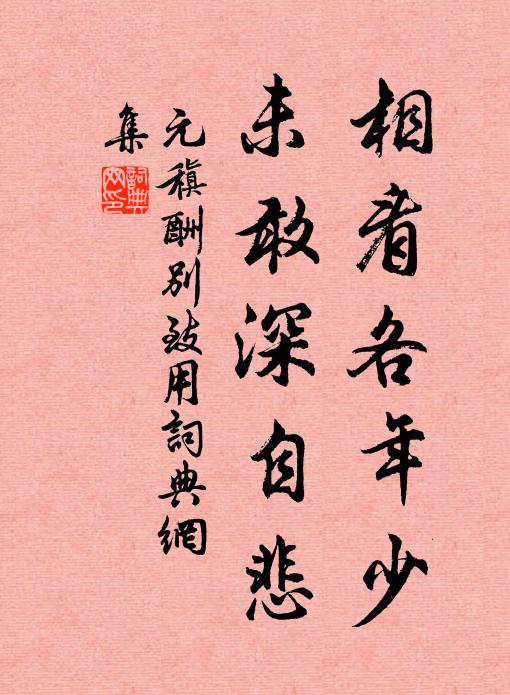 相看各年少
未敢深自悲
元稹酬別致用詞典網
集
詞典網印